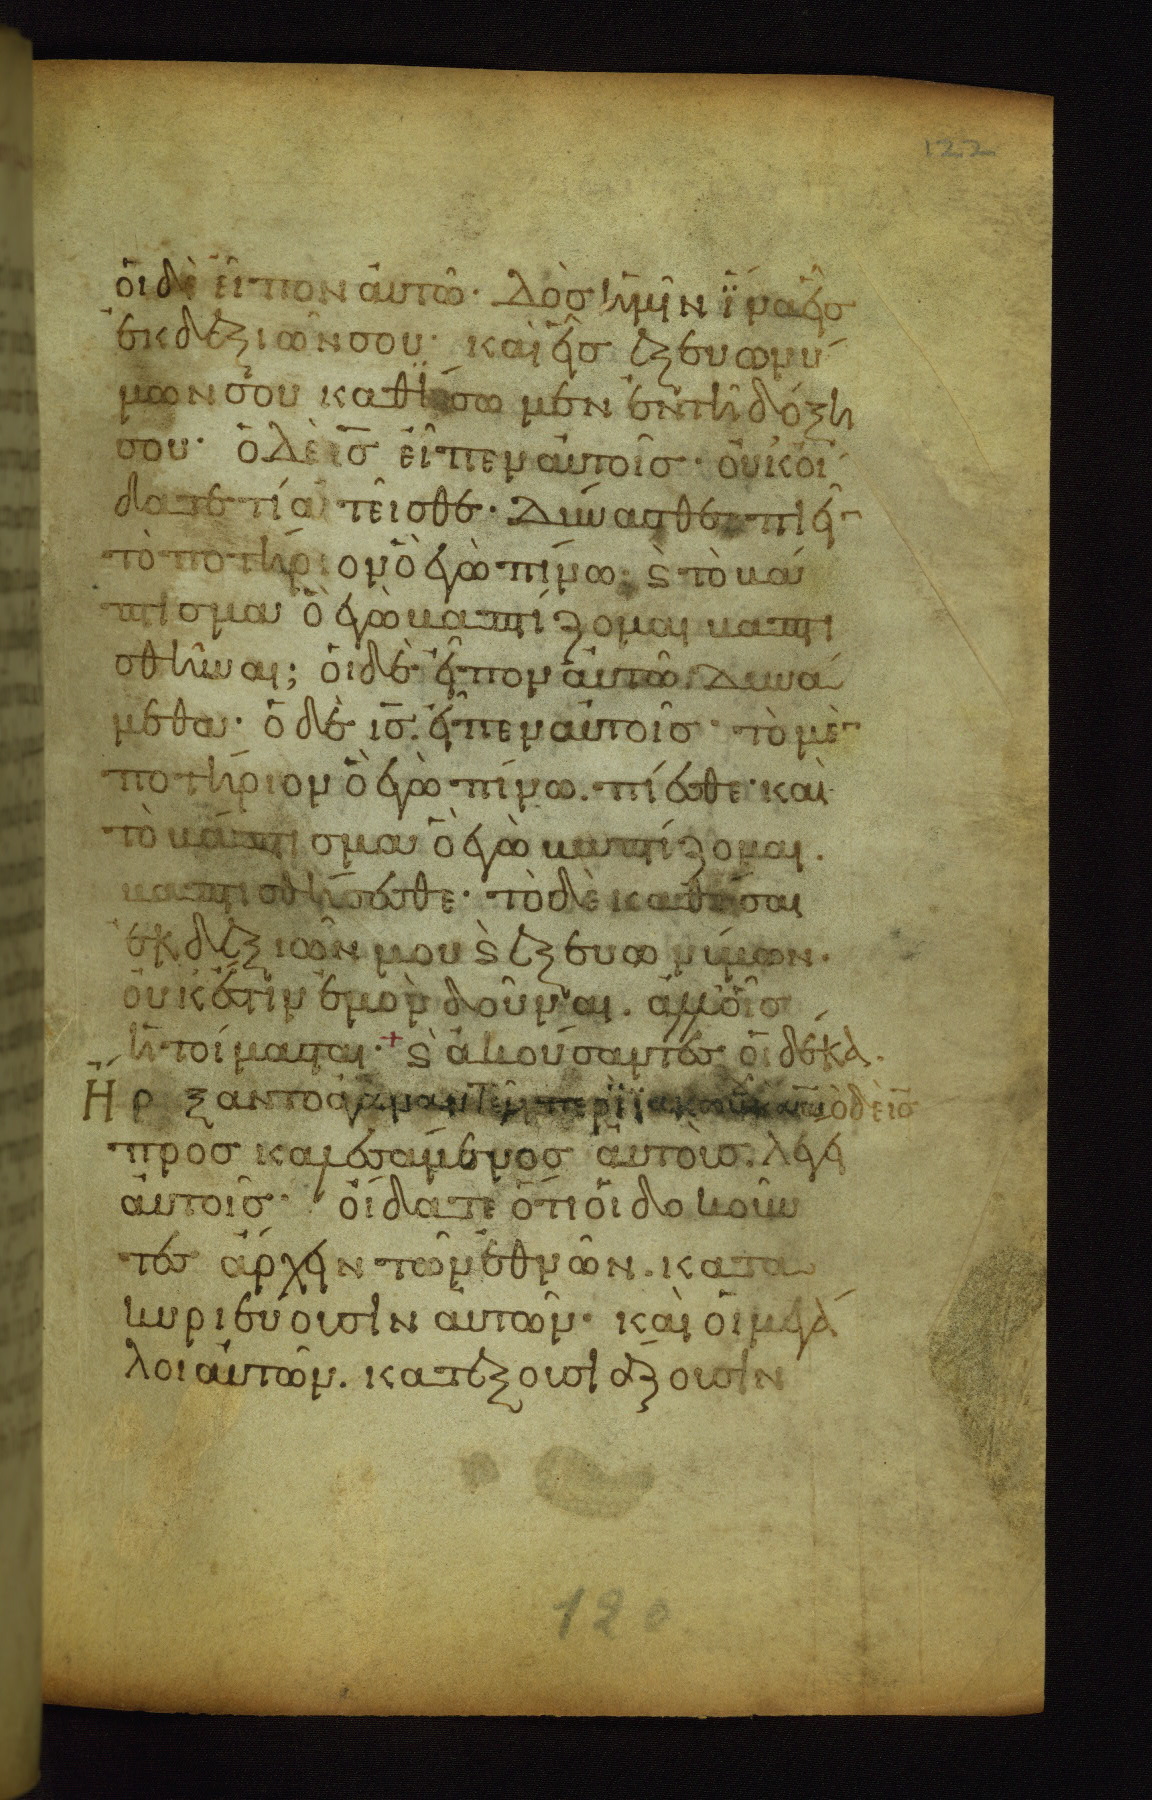 122
ὅι δὲ εἶπον ἀυτῶ· Δὸσ ἡμῖν ἵνα εἷσ
ἐκ δεξιῶν σου· καὶ εἷσ ἐξ ευωνύ
μων σου καθήσωμεν ἐν τῆ δόξη
σου· ὁ Δὲ ισ εἶπεν ἀυτοῖσ· ὀυκ ὀί
δατε τί αἰτεῖσθε· Δύνασθε πιεῖν
τὸ ποτήριον ὃ ἐγὼ πίνω· ϛ τὸ βά
πτισμα ὃ ἐγὼ βαπτίζομαι βαπτι
σθῆναι; ὅι δὲ εἶπον ἀυτῶ. Δυνά
μεθα· ὁ δὲ ισ. εἶπεν ἀυτοῖσ· τὸ μὲν
ποτήριον ὃ ἐγὼ πίνω. πίεσθε· καὶ
τὸ βάπτισμα ὃ ἐγὼ βαπτίζομαι.
βαπτισθήσεσθε· τὸ δὲ καθῆσαι
ἐκ δεξιῶν μου ϛ ἐξ ευωνύμων.
ὀυκ ἔστιν ἐμὸν δοῦναι. ἀλλ' ὁῖσ
ἡτοίμασται· + ϛ ἀκούσαντεσ ὁι δέκα.
Ἤρξαντο ἀγανακτεῖν περὶ ϊακώβου ὁ δὲ ισ
προσκαλεσάμενοσ ἀυτοὺσ. λέγει
ἀυτοῖσ· ὀίδατε ὅτι ὁι δοκοῦν
τεσ ἄρχειν τῶν ἐθνῶν. κατα
κυριεύουσιν ἀυτῶν· καὶ ὁι μεγά
λοι ἀυτῶν. κατεξουσιάζουσιν
120